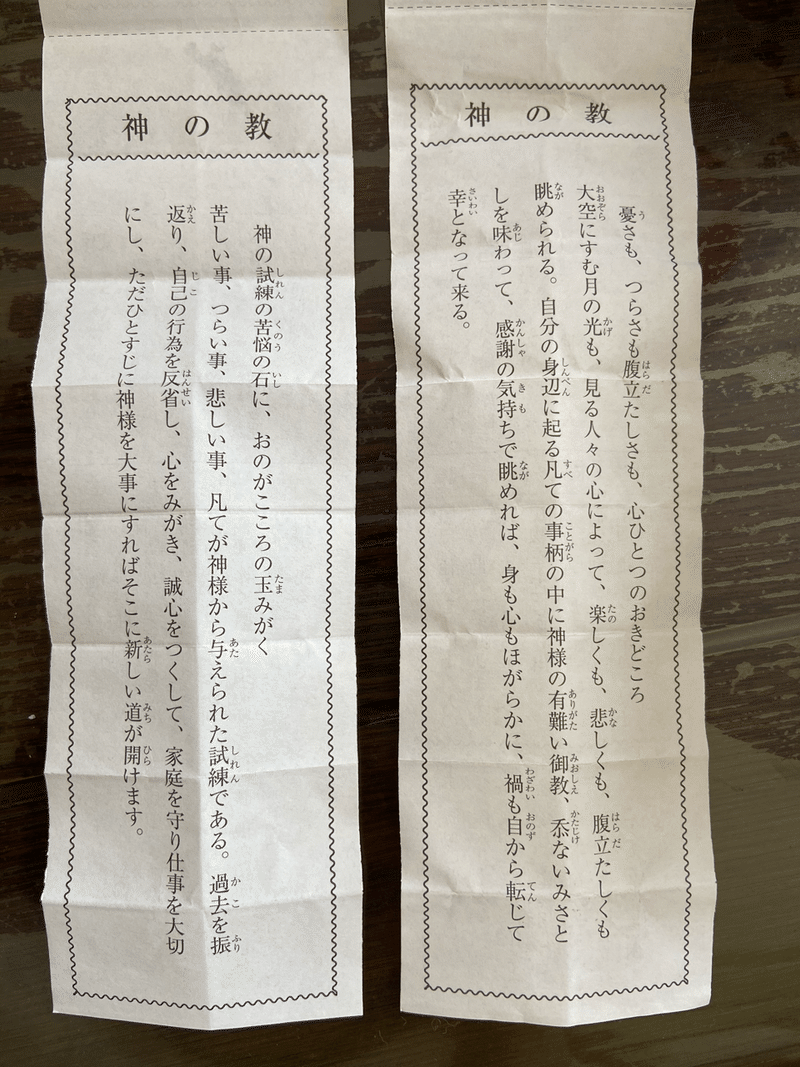 神の教
憂さも、つらさも腹立たしさも、心ひとつのおきどころ
大空にすむ月の光も、見る人々の心によって、楽しくも、悲しくも、腹立たしくも
眺められる。自分の身辺に起る凡ての事柄の中に神様の有難い御教、忝ないみさと
しを味わって、感謝の気持ちで眺めれば、身も心もほがらかに、禍も自から転じて
幸となって来る。
神の教
神の試練の苦悩の石に、おのがこころの玉みがく
苦しい事、つらい事、悲しい事、凡てが神様から与えられた試練である。過去を振
返り、自己の行為を反省し、心をみがき、誠心をつくして、家庭を守り仕事を大切
にし、ただひとすじに神様を大事にすればそこに新しい道が開けます。